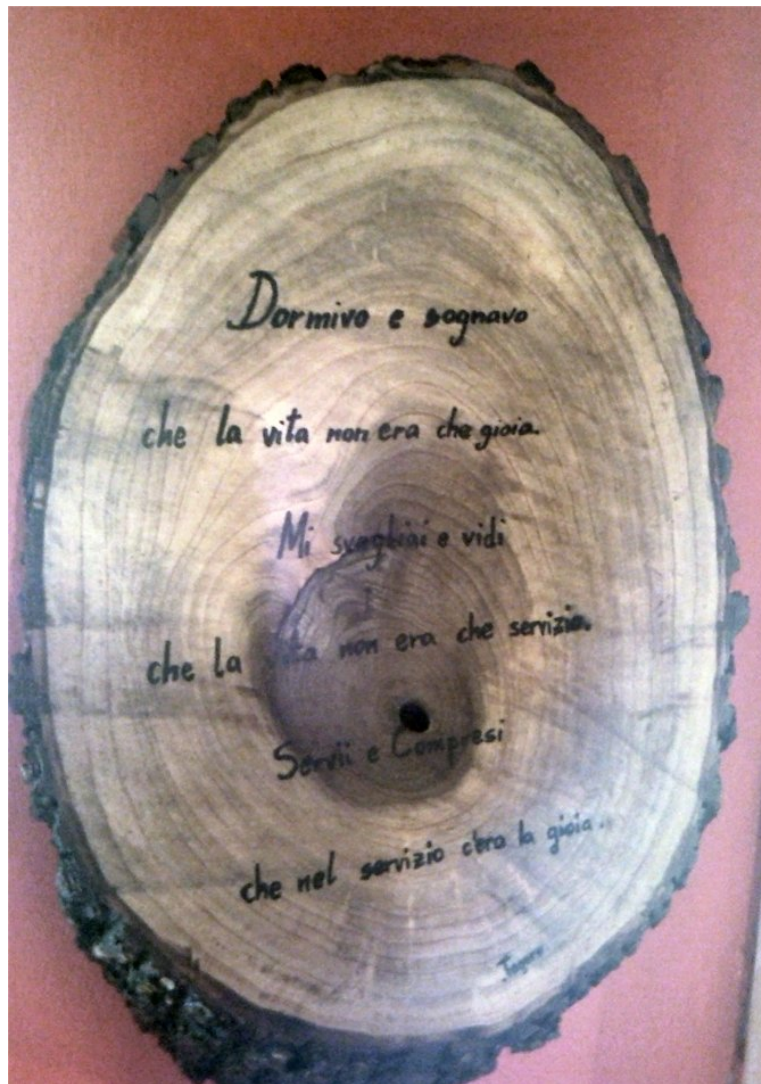 Dormivo e sognavo
che la vita non era che gioia.
Mi svegliai e vidi
che la vita non era che servizio.
Servii e Compresi
che nel servizio c'era la gioia.
Tagore